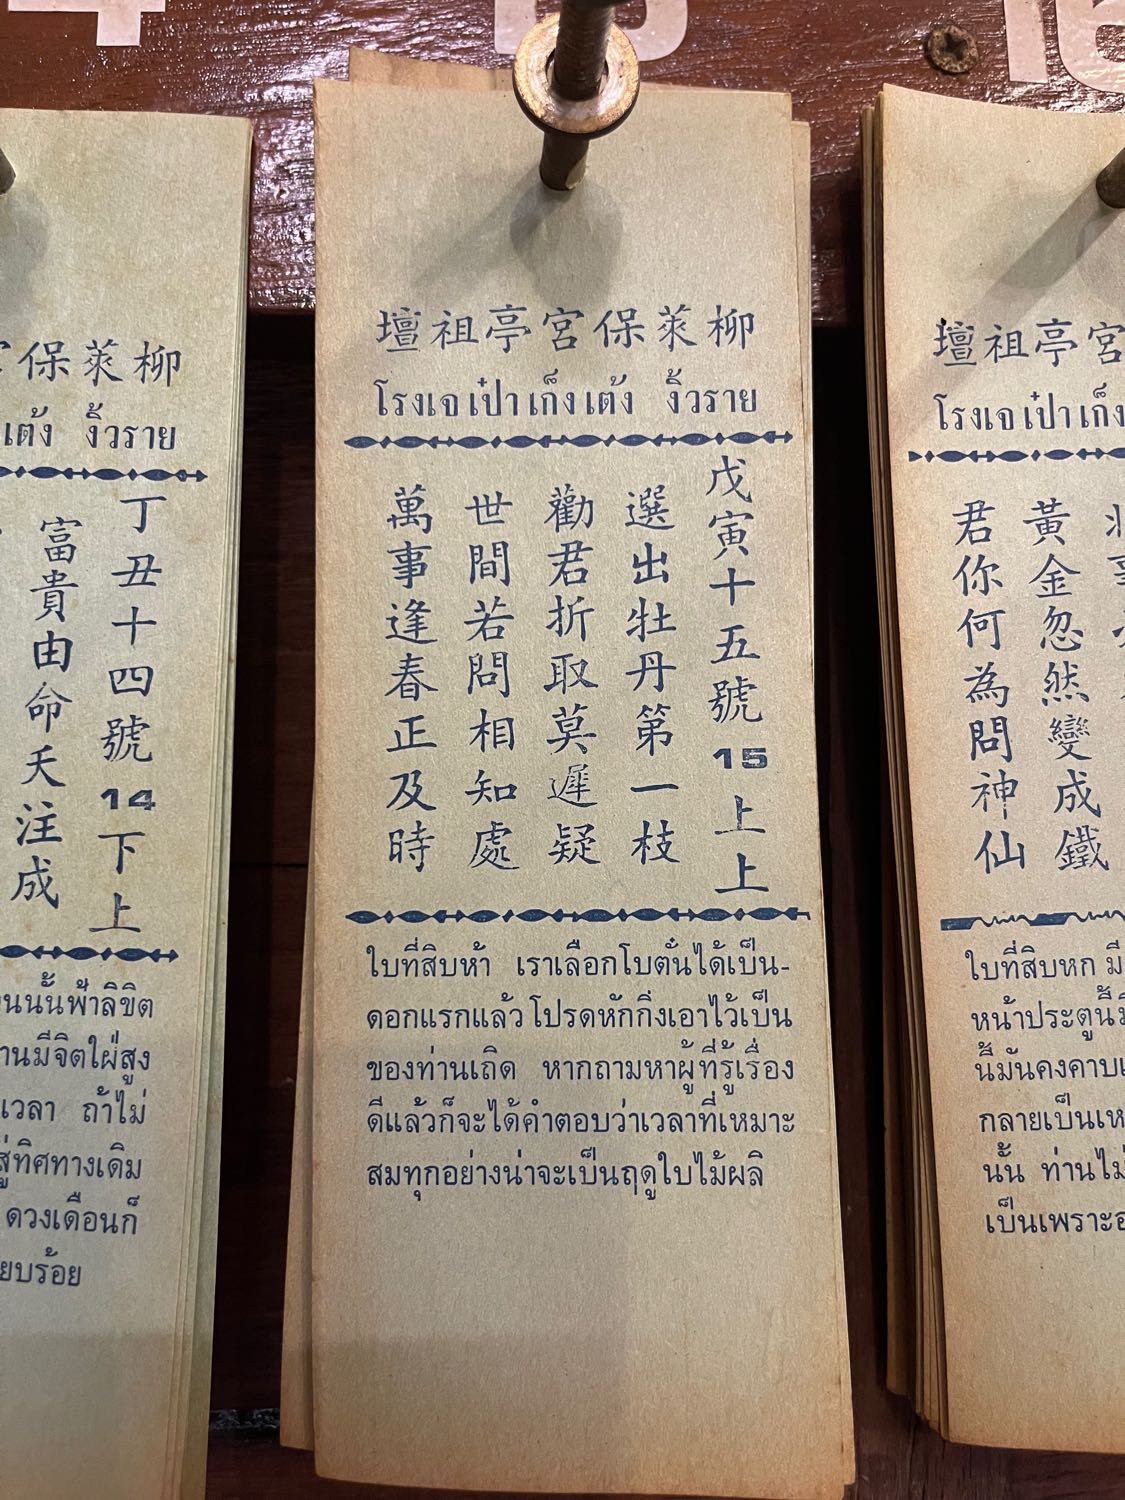 4
15
16
保萊柳
เต้ง งิ้วราย
丁丑十四號 14 下上
富貴由命天注成
นนั้นฟ้าลิขิต
านมีจิตใฝ่สูง
เวลา ถ้าไม่
สู่ทิศทางเดิม
ดวงเดือนก็
ยบร้อย
壇祖亭宮保萊柳
โรงเจเป๋าเก็งเต้ง งิ้วราย
戊寅十五號 15 上上
選出牡丹第一枝
勸君折取莫遲疑
世間若問相知處
萬事逢春正及時
ใบที่สิบห้า เราเลือกโบตั๋นได้เป็น-
ดอกแรกแล้วโปรดหักกิ่งเอาไว้เป็น
ของท่านเถิด หากถามหาผู้ที่รู้เรื่อง
ดีแล้วก็จะได้คำตอบว่าเวลาที่เหมาะ
สมทุกอย่างน่าจะเป็นฤดูใบไม้ผลิ
壇祖亭宮
โรงเจเป๋าเก็ง
黃金忽然變成鐵
君你何為問神仙
ใบที่สิบหก มี
หน้าประตูนี้
นี้มันคงคาบ
กลายเป็นเห
นั้น ท่านไม่
เป็นเพราะอ